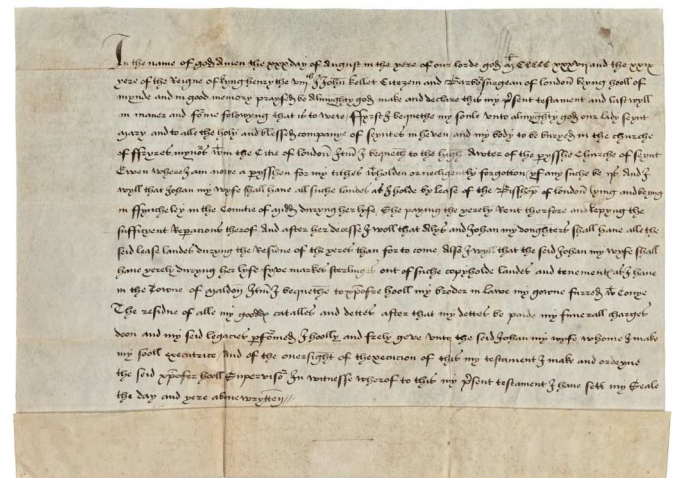 In the name of god Amen the xxx day of August in the yere of our lorde god M CCCCC xxxvii and the xxix
yere of the Reigne of kyng henry the viiith I John Kellet Citezein and Barbor Surgean of london beyng hooll of
mynde and in good memory praysed be almyghty god make and declare this my p̄sent testament and last wyll
in maner and fōme folowyng that is to wete / ffyrst I bequethe my soule vnto almyghty god our lady seynt
Mary and to alle the holy and blessed companye of seyntes in heven and my body to be buryed in the churche
of ffryres mynors wtin the Citie of london Itm̄ I bequeth to the high Awter of the parysshe Churche of seynt
Ewen where I am nowe a parysshen for my tithes wtholden or necligently forgotton yf any suche be And I
wyll that Johan my wyfe shall haue all suche landes as I holde by lease of the Bisshop of london lying and beyng
in ffyncheley in the Countie of Midd duryng her lyfe She paying the yerely Rent therfore and kepyng the
sufficient Reparacions therof And after her decesse I woll that Alys and Johan my doughters shall haue alle the
seid lease landes duryng the Residue of the yeres than for to come Also I wyll that the seid Johan my wyfe shall
haue yerely duryng her lyfe fyve markes sterlinges out of suche copyholde landes and tenementes as I haue
in the Towne of Maldon Itm̄ I bequethe to xp̄ofre hooll my broder in lawe my gowne furred wt Conye
The residue of alle my goodes catalles and dettes after that my dettes be paide my funerall charges
doon and my seid legacies pfōmed I hoolly and frely geve vnto the seid Johan my wyfe whome I make
my sooll executrice And of the ouersight of thexecucion of this my testament I make and ordeyne
the seid xp̄ofer hooll Supervisor In witnesse wherof to this my p̄sent testament I haue sett my Seale
the day and yere aboue wrytten //